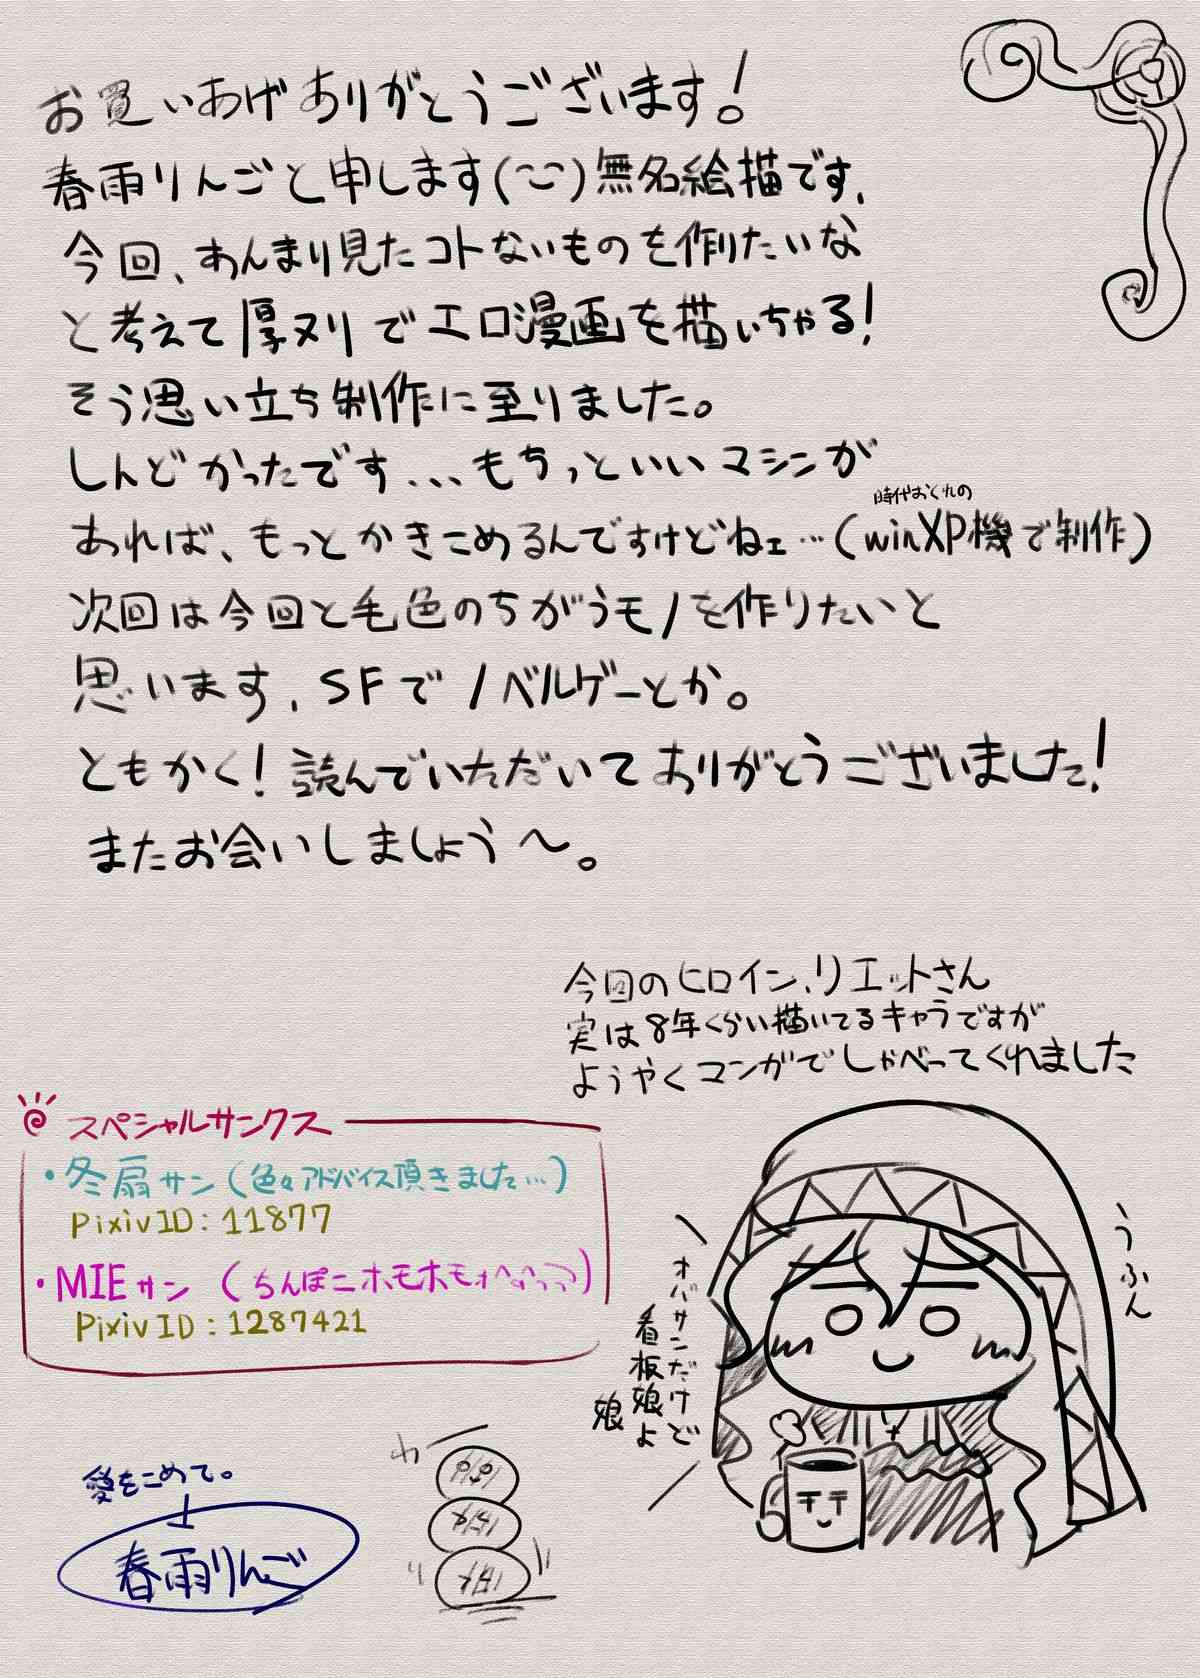 お買いあげありがとうございます!
春雨りんごと申します(︶‿︶)無名絵描です、
今回、あんまり見たコトないものを作りたいな
と考えて厚ヌリでエロ漫画を描いちゃる!
そう思い立ち制作に至りました。
しんどかったです...もちっといいマシンが
あれば、もっとかきこめるんですけどねェ…(時代おくれのwinXP機で制作)
次回は今回と毛色のちがうモノを作りたいと
思います、SFでノベルゲーとか。
ともかく!読んでいただいてありがとうございました!
またお会いしましょう~。
今回のヒロイン、リエットさん
実は8年くらい描いてるキャラですが
ようやくマンガでしゃべってくれました
スペシャルサンクス
・冬扇サン(色々アドバイス頂きました…)
PixivID:11877
・MIEサン(ちんぽニホモホモ
PixivID:1287421
うふん
オバサンだけど
看板娘よ
娘
愛をこめて。
春雨りんご